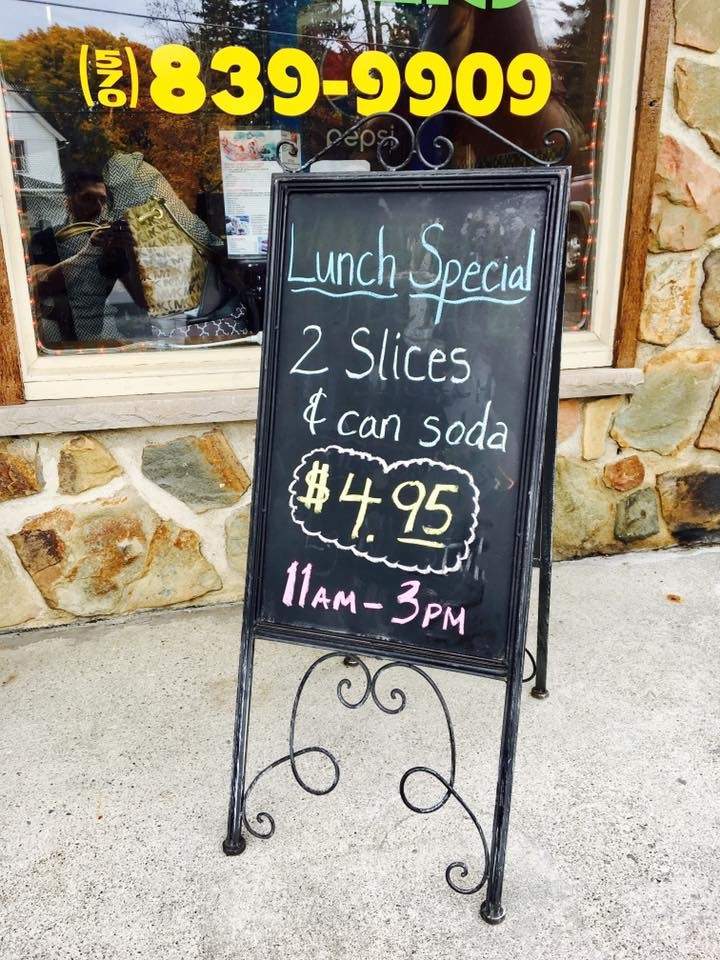 (570) 839-9909
pepsi
Lunch Special
2 Slices
& can soda
$4.95
11AM - 3PM